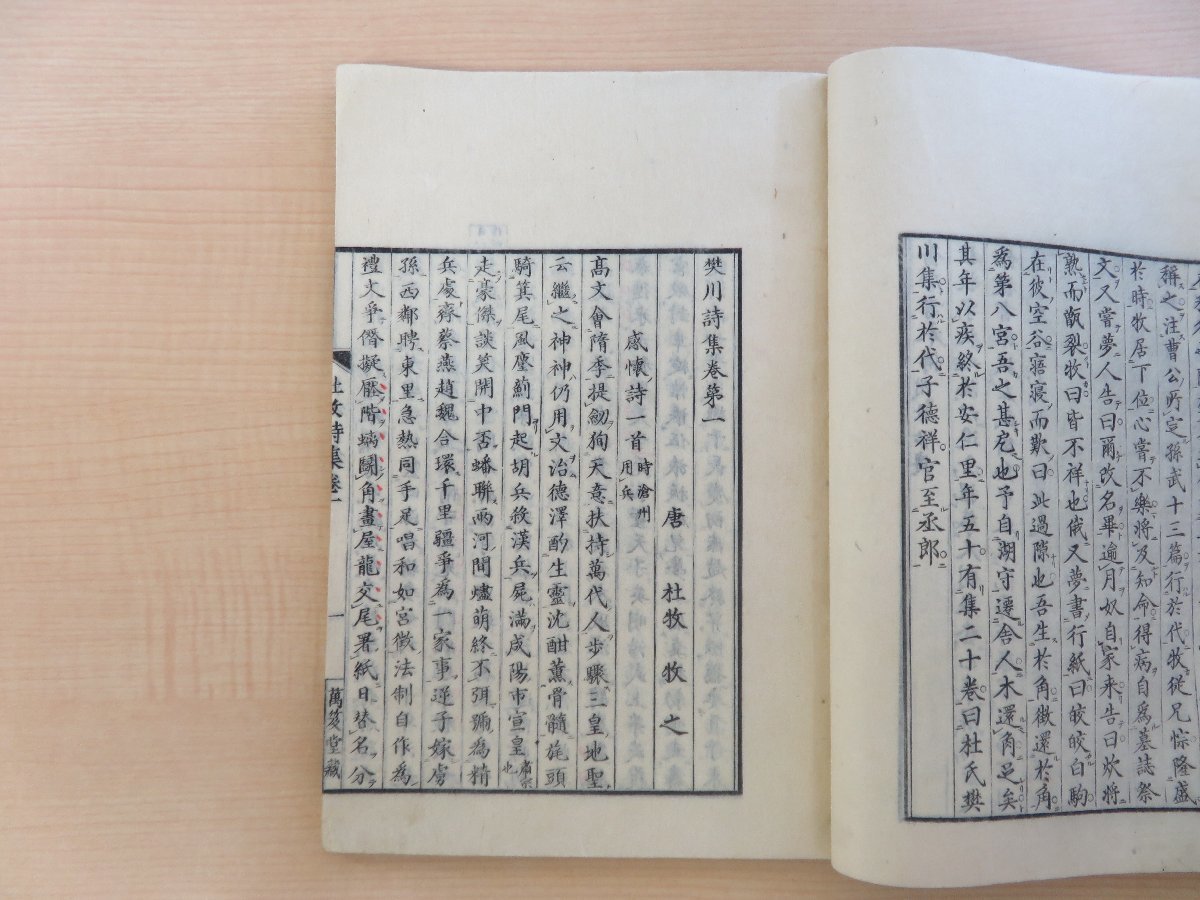 稱之注曹公所定孫武十三篇行於代牧從兄悰隆盛
於時牧居下位心嘗不樂將及知命得病自爲墓誌祭
文又嘗夢人告曰爾改名畢逾月奴自家来告曰炊將
熟而甑裂牧曰皆不祥也俄又夢書行紙曰皎皎白駒
在彼空谷寤寝而歎曰此過隙也吾生於角徵還於角
爲第八宮吾之甚厄也予自湖守遷舍人木還角足矣
其年以疾終於安仁里年五十有集二十卷曰杜氏樊
川集行於代子德祥官至丞郎
樊川詩集卷第一
唐 杜牧 牧之
感懐詩一首 時滄州用兵
髙文會隋季提劒狥天意扶持萬代人步驟三皇地聖
云繼之神神仍用文治德澤酌生靈沈酣薫骨髓旄頭
騎箕尾風塵薊門起胡兵殺漢兵屍滿咸陽市宣皇
走豪傑談笑開中否蟠聯兩河間燼萌終不弭號為精
兵處齊蔡燕趙魏合環千里疆爭為一家事逆子嫁虜
孫西鄰聘東里急熱同手足唱和如宮徵法制自作為
禮文爭僭擬壓階螭鬬角畫屋龍交尾署紙日替名分
杜牧詩集卷一
一
萬笈堂藏